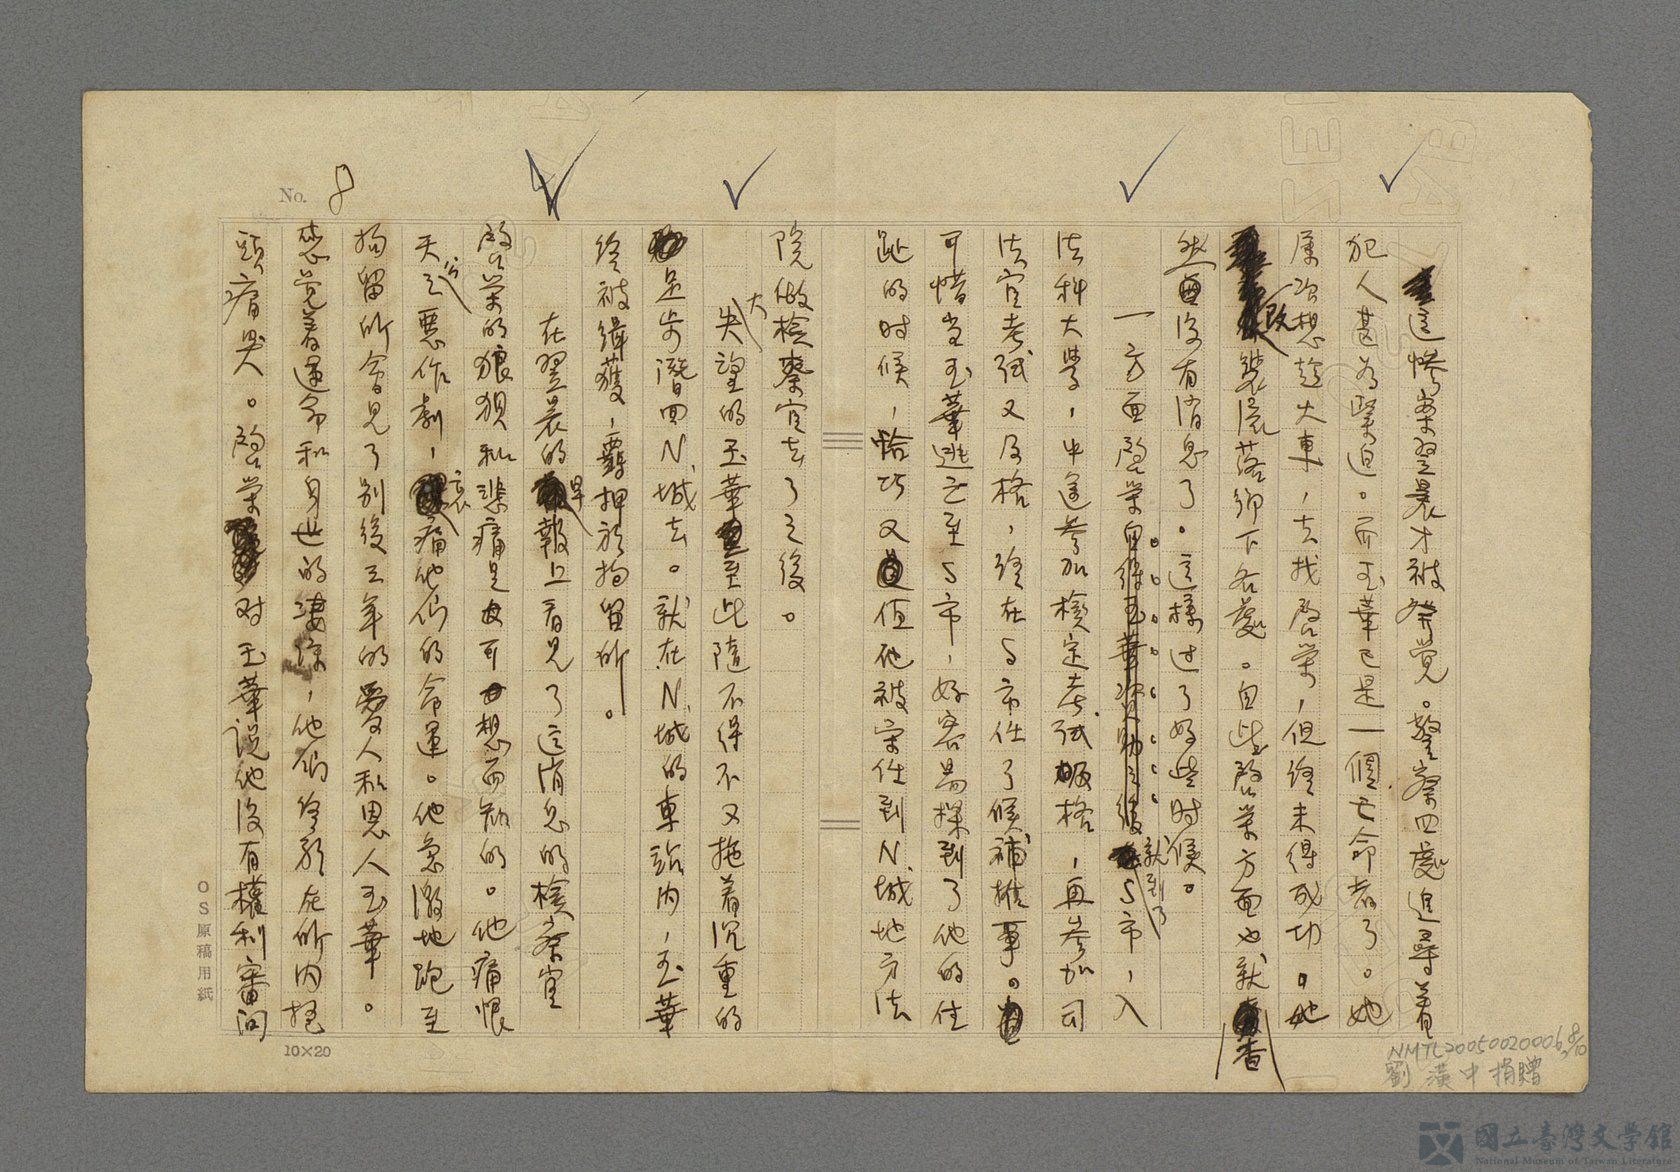 No. 8
這慘案翌晨才被發覺。警察四處追尋着
犯人甚為緊迫。而玉華已是一個亡命者了。她
屢次想趁火車，去找啟榮，但終未得成功。她
改裝流落鄉下各處。自此啟榮方面也就杳
然沒有消息了。這樣过了好些时候。
一方面啟榮自得玉華資助之後就到了S市，入
法科大學，中途參加檢定考試 格，再參加司
法官考試又及格，終在S市任了候補推事。
可惜当玉華逃亡至S市，好容易探到了他的住
趾的时候，恰巧又值他被宋任到N城地方法
院做檢察官去了之後。
大失望的玉華至此隨不得不又拖着沉重的
足步潛回N城去。就在N城的車站内，玉華
終被緝獲，羈押於拘留所。
在翌晨的早報上看見了這消息的檢察官
啟榮的狼狽和悲痛是可想而知的。他痛恨
天公之惡作劇，哀痛他們的命運。他急激地跑至
拘留所會見了别後三年的愛人和恩人玉華。
感覚着運命和身世的凄涼，他倆終於在所内抱
頭痛哭。啟榮对玉華説他沒有權利審问
10×20
OS原稿用紙
NMTL20050020006 8/10
劉漢中捐贈
國立臺灣文學館
National Museum of Taiwan Literature